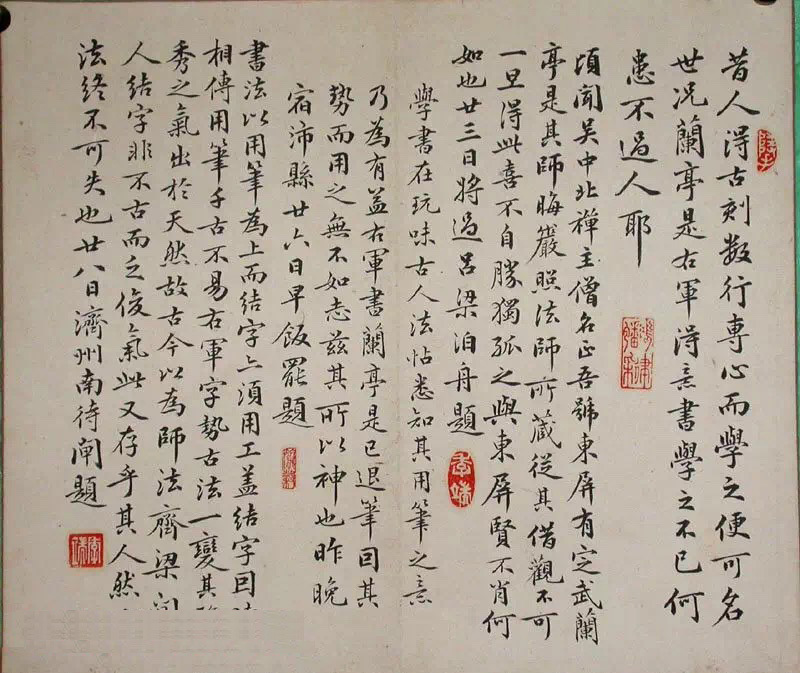 昔人得古刻数行專心而學之便可名
世况蘭亭是右軍得意書學之不已何
患不過人耶
頃聞吴中北禅主僧名正吾號東屏有定武蘭
亭是其師晦巖照法師所藏從其借觀不可
一旦得此喜不自勝獨孤之與東屏賢不肖何
如也廿三日將過吕梁泊舟題
學書在玩味古人法帖悉知其用筆之意
乃為有益右軍書蘭亭是已退筆因其
勢而用之無不如志兹其所以神也昨晚
宿沛縣廿六日早飯罷題
書法以用筆為上而結字亦須用工盖結字因
相傳用筆千古不易右軍字勢古法一變其
秀之氣出於天然故古今以為師法齊梁间
人結字非不古而乏俊氣此又存乎其人然
法終不可失也廿八日濟州南待闸題